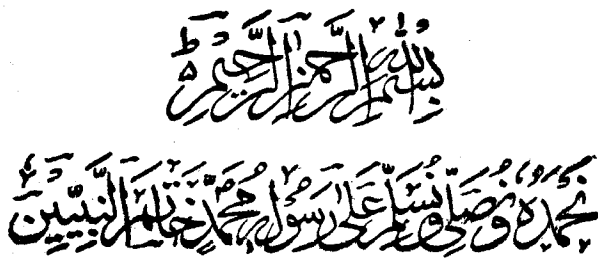 بِسْمِ اللهِ الرَّحْمٰنِ الرَّحِيْمِ ط
نَحْمَدُهٗ وَنُصَلِّيْ وَنُسَلِّمُ عَلٰى رَسُوْلِهٖ مُحَمَّدٍ خَاتَمِ النَّبِيّيْنَ